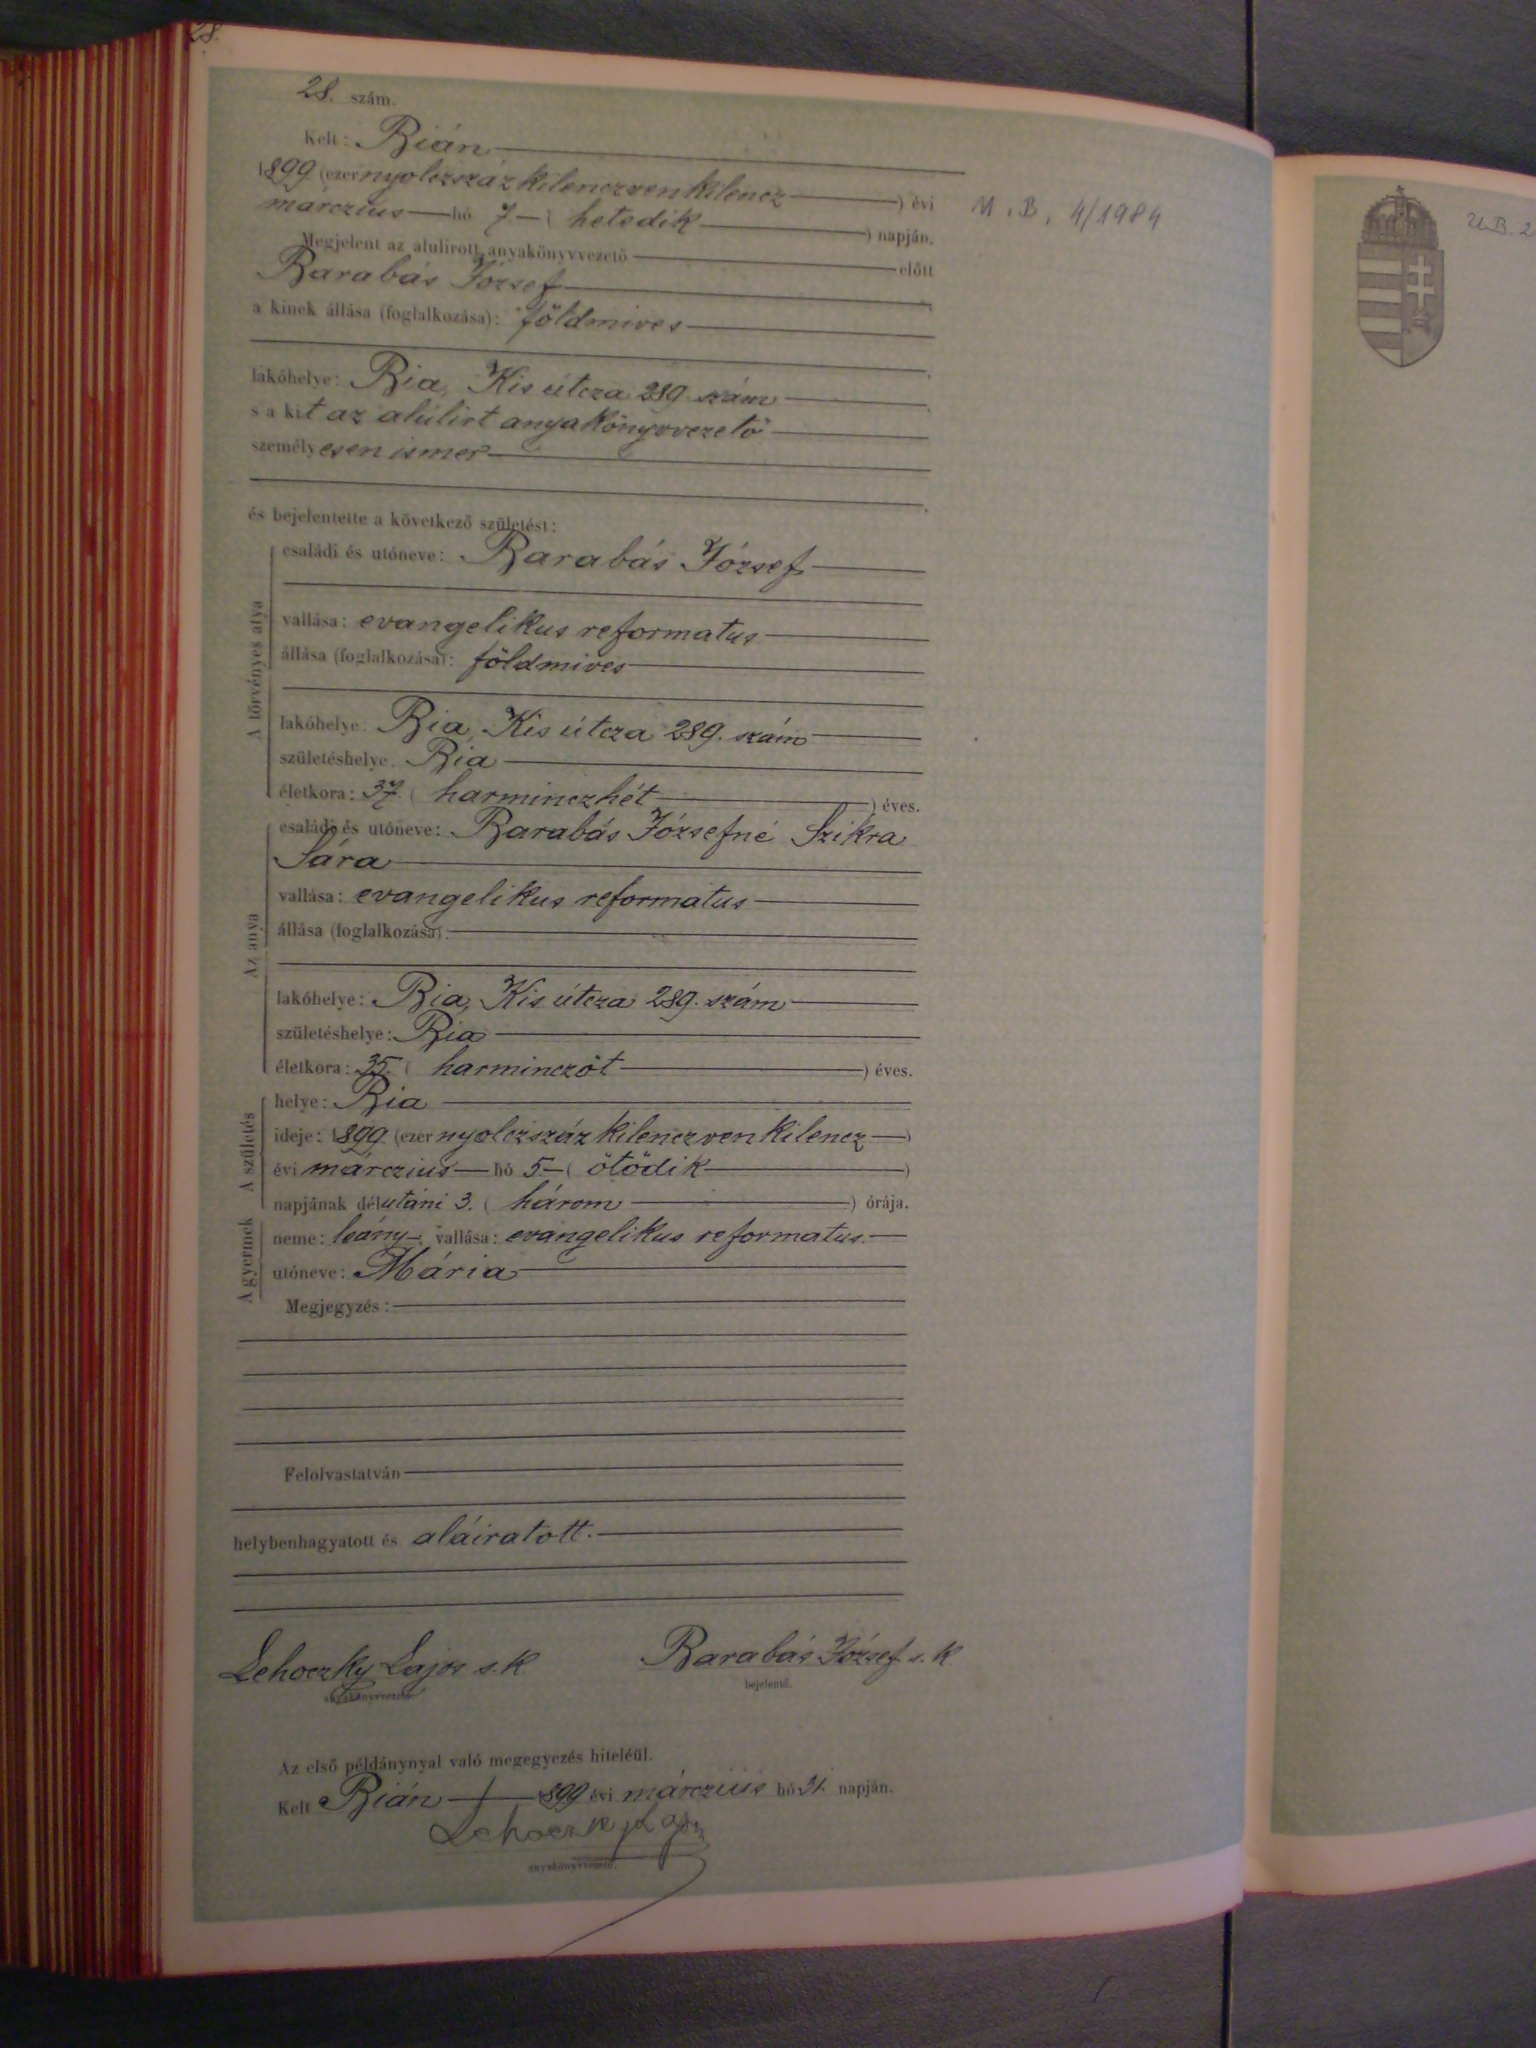 28.
28. szám.
Kelt: Bián
1899. (ezer nyolczszáz kilenczven kilencz) évi
márczius hó 7. ( hetedik ) napján.
M. B. 4/1984
Megjelent az alulirott anyakönyvvezető előtt
Barabás József
a kinek állása (foglalkozása): földmives
lakóhelye: Bia, Kis útcza 289. szám
s a kit az alúlirt anyakönyvvezető
személyesen ismer
és bejelentette a következő születést:
A törvényes atya
családi és utóneve: Barabás József
vallása: evangelikus reformatus
állása (foglalkozása): földmives
lakóhelye: Bia, Kis útcza 289. szám
születéshelye: Bia
életkora: 37. ( harminczhét ) éves.
Az anya
családi és utóneve: Barabás Józsefné Szikra
Sára
vallása: evangelikus reformatus
állása (foglalkozása):
lakóhelye: Bia, Kis útcza 289. szám
születéshelye: Bia
életkora: 35. ( harminczöt ) éves.
A születés
helye: Bia
ideje: 1899. (ezer nyolczszáz kilenczven kilencz )
évi márczius hó 5. ( ötödik )
napjának délutáni 3. ( három ) órája.
A gyermek
neme: leány, vallása: evangelikus reformatus.
utóneve: Mária
Megjegyzés:
Felolvastatván
helybenhagyatott és aláiratott.
Lehoczky Lajos s. k. Barabás József s. k.
anyakönyvvezető. bejelentő.
Az első példánynyal való megegyezés hiteléül.
Kelt Bián 1899 évi márczius hó 31. napján.
Lehoczky Lajos
anyakönyvvezető.